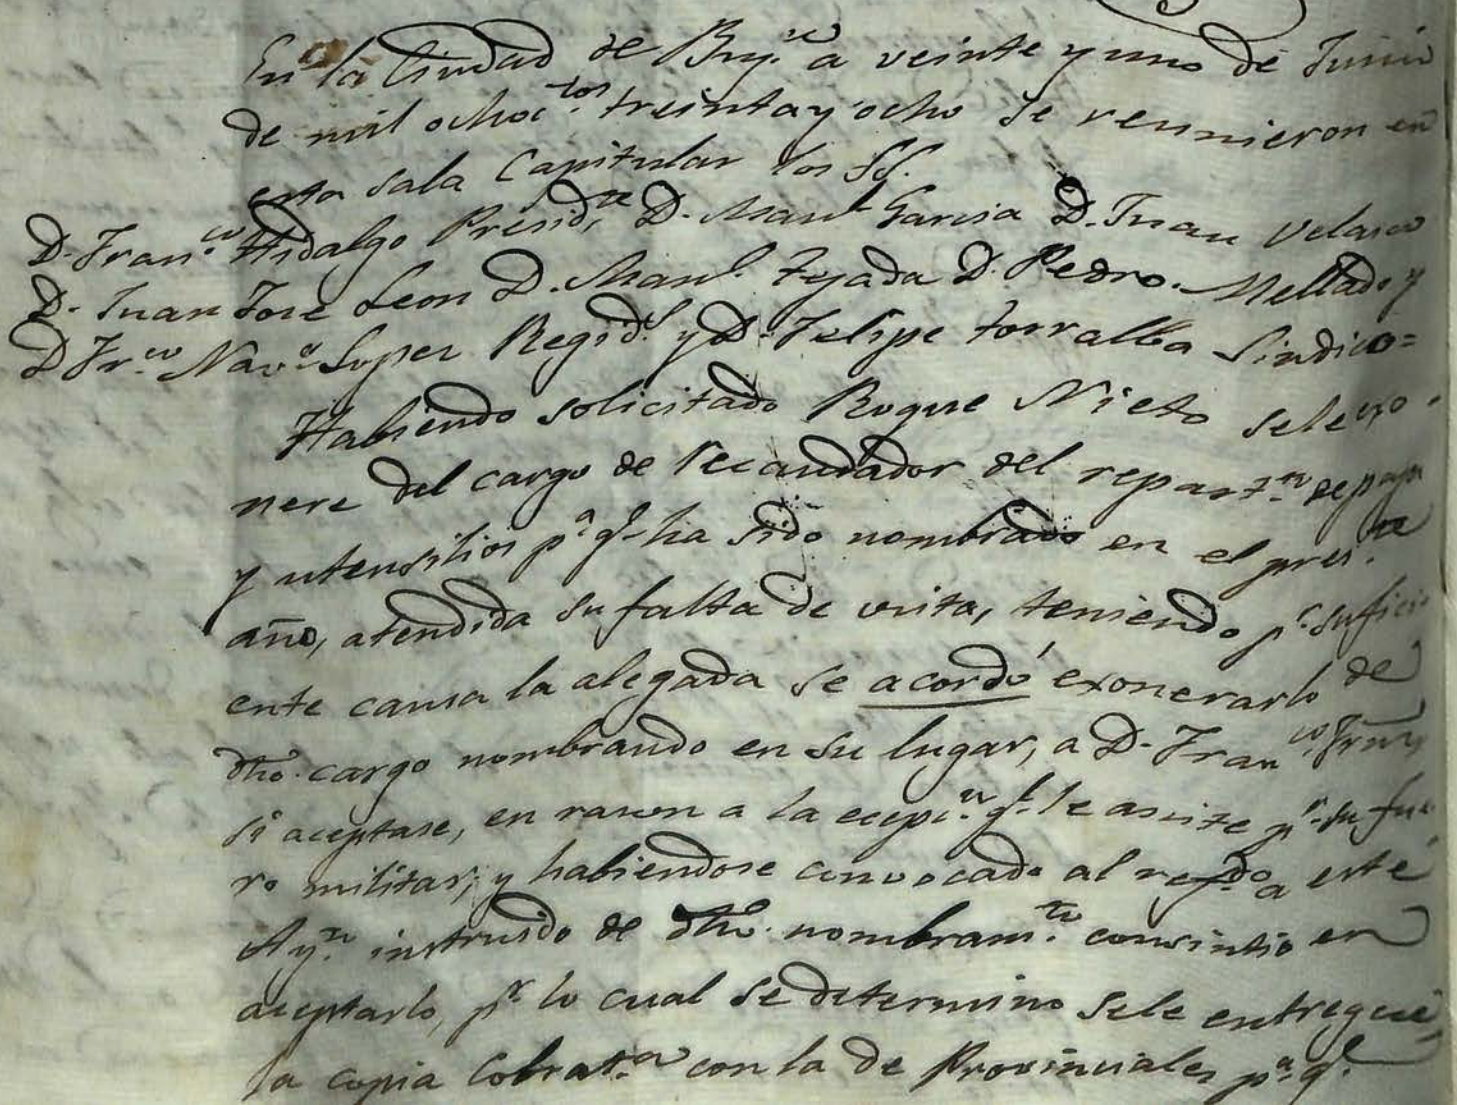 En la Ciudad de Buj.ce a veinte y uno de Junio
de mil ochoc.tos treinta y ocho se reunieron en
esta sala Capitular los SS.
D. Fran.co Hidalgo Presid.te D. Man.l Garcia D. Juan Velasco
D. Juan Jose Leon D. Man.l Tejada D. Pedro Mellado y
D Fr.co Nav.o Super Regid.s y D. Felipe Torralba Sindico=
Habiendo solicitado Roque Nieto sele exo-
nere del cargo de Recaudador del repart.to de paja
y utensilios p.a q.e ha sido nombrado en el pres.te
año, atendida su falta de vista, teniendo p.r sufici-
ente causa la alegada se acordó exonerarlo de
dho. cargo nombrando en su lugar, a D. Fran.co
si aceptase, en rason a la ecepc.n q.e le asiste p.r su fue-
ro militar; y habiendose convocado al refdo a este
Ay.to instruido de dho. nombram.to consintio en
aceptarlo, p.r lo cual se determino sele entregue
la copia Cobrat.a con la de Provinciales p.a q.e